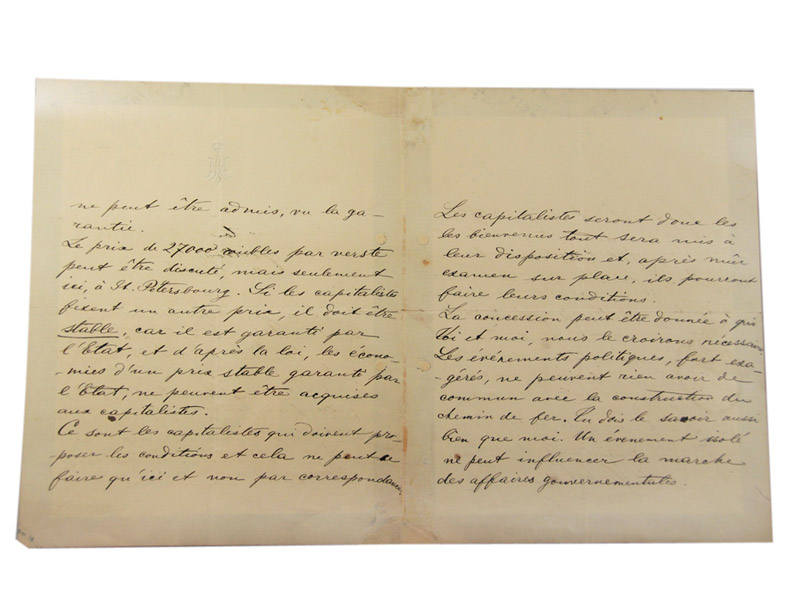 ne peut être admis, vu la ga-
rantie.
Le prix de 27000 roubles par verste
peut être discuté, mais seulement
ici, à St. Pétersbourg. Si les capitalistes
fixent un autre prix, il doit être
stable, car il est garanti par
l'Etat, et d'après la loi, les écono-
-mies d'un prix stable garanti par
l'Etat, ne peuvent être acquises
aux capitalistes.
Ce sont les capitalistes qui doivent pro-
poser les conditions et cela ne peut se
faire qu'ici et non par correspondance.
Les capitalistes seront donc les
les bienvenus tout sera mis à
leur disposition et, après mûr
examen sur place, ils pourront
faire leurs conditions.
La concession peut être donnée à qui
toi et moi, nous le croirons nécessaire.
Les événements politiques, fort exa-
-gérés, ne peuvent rien avoir de
commun avec la construction du
chemin de fer. Tu dois le savoir aussi
bien que moi. Un evenement isolé
ne peut influencer la marche
des affaires gouvernementales.